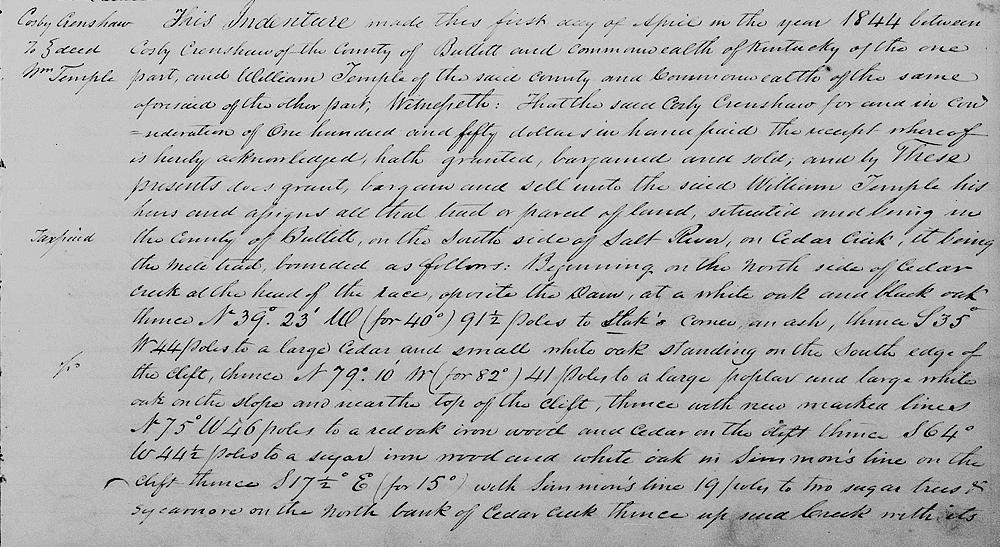 Cosby Crenshaw
To } deed
Wm Temple
Tax paid
This Indenture made this first day of April in the year 1844 between
Cosby Crenshaw of the County of Bullitt and commonwealth of Kentucky of the one
part, and William Temple of the said County and Commonwealth of the same
aforesaid of the other part, Witnesseth: That the said Cosby Crenshaw for and in con
=sideration of One hundred and fifty dollars in hand paid the receipt whereof
is hereby acknowledged, hath granted, bargained and sold, and by These
presents does grant, bargain and sell unto the said William Temple his
heirs and assigns all that tract or parcel of land, situated and being in
the County of Bullitt, on the South side of Salt River, on Cedar Creek, it being
the Mill tract, bounded as follows: Beginning on the North side of Cedar
Creek at the head of the race, oposite the Dam, at a white oak and black oak
thence N 39°. 23' W (for 40°) 91½ poles to Stak's corner, an ash, thence S 35°
W 44 poles to a large Cedar and small white oak standing on the South edge of
the clift, thence N 79°. 10' W (for 82°) 41 poles to a large poplar and large white
oak on the slope and near the top of the clift, thence with new marked lines
N 75° W 46 poles to a red oak iron wood and Cedar on the clift thence S 64°
W 44½ poles to a sugar iron wood and white oak in Simmon's line on the
clift thence S 17½° E (for 15°) with Simmon's line 19 poles to two sugar trees &
Sycamore on the North bank of Cedar Creek thence up said Creek with its